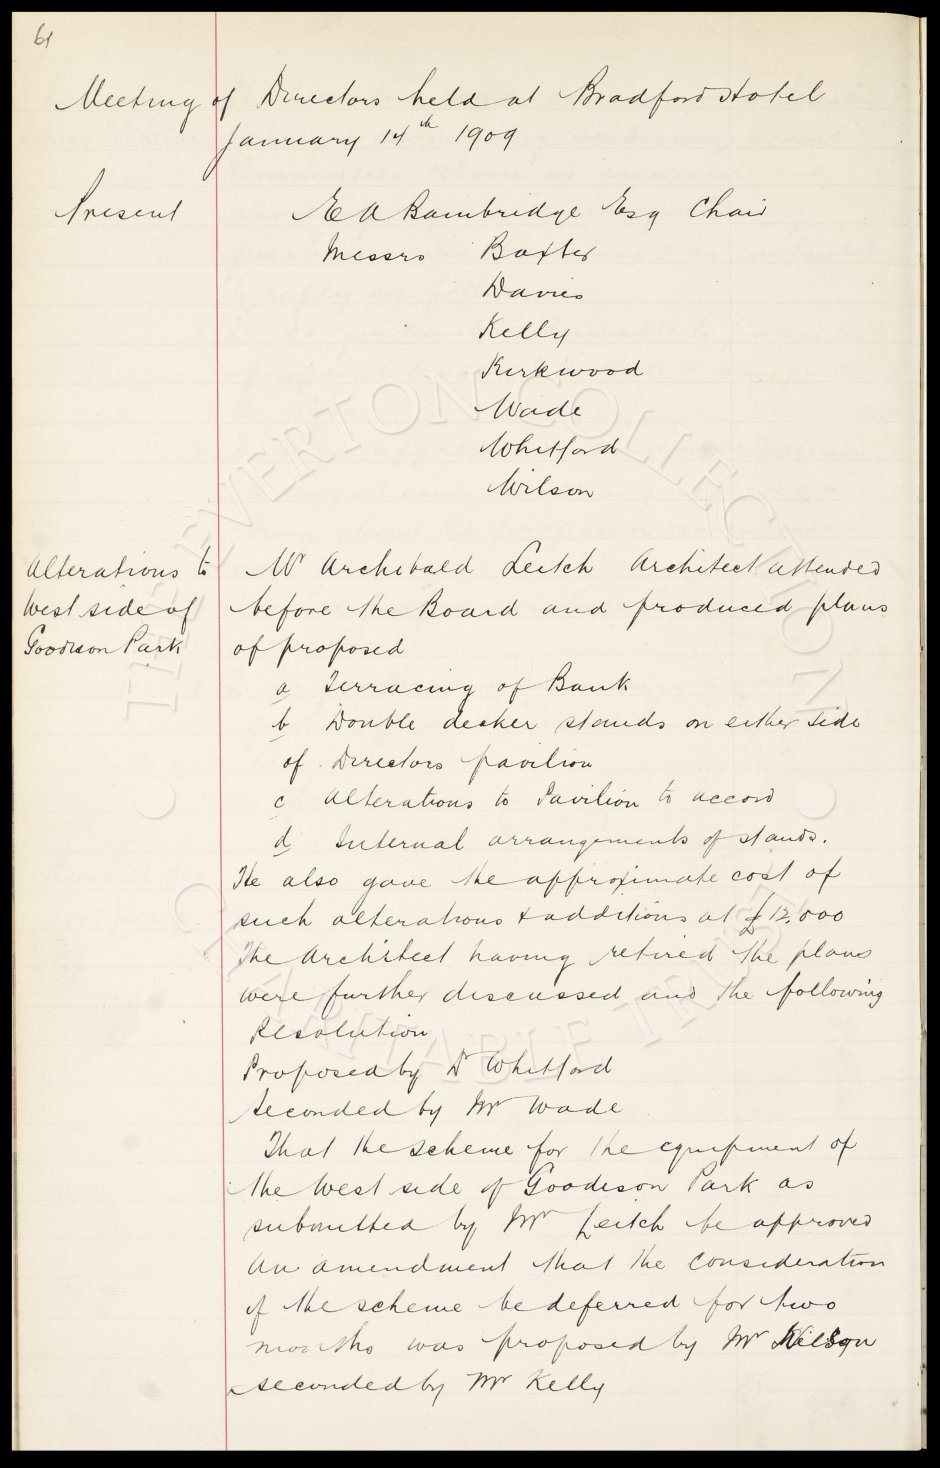 61
Meeting of Directors held at Bradford Hotel
January 14th 1909
Present E A Bainbridge Esq Chair
Messrs Baxter
Davies
Kelly
Kirkwood
Wade
Whitford
Wilson
Alterations to
West side of
Goodison Park
Mr Archibald Leitch Architect attended
before the Board and produced plans
of proposed
a Terracing of Bank
b Double decker stands on either side
of Directors pavilion
c Alterations to Pavilion to accord
d Internal arrangements of stands.
He also gave the approximate cost of
such alterations & additions at £12,000
The Architect having retired the plans
were further discussed and the following
Resolution
Proposed by Dr Whitford
Seconded by Mr Wade
That the scheme for the equipment of
the West side of Goodison Park as
submitted by Mr Leitch be approved
An amendment that the consideration
of the scheme be deferred for two
months was proposed by Mr Wilson
seconded by Mr Kelly
THE EVERTON COLLECTION
CHARITABLE TRUST